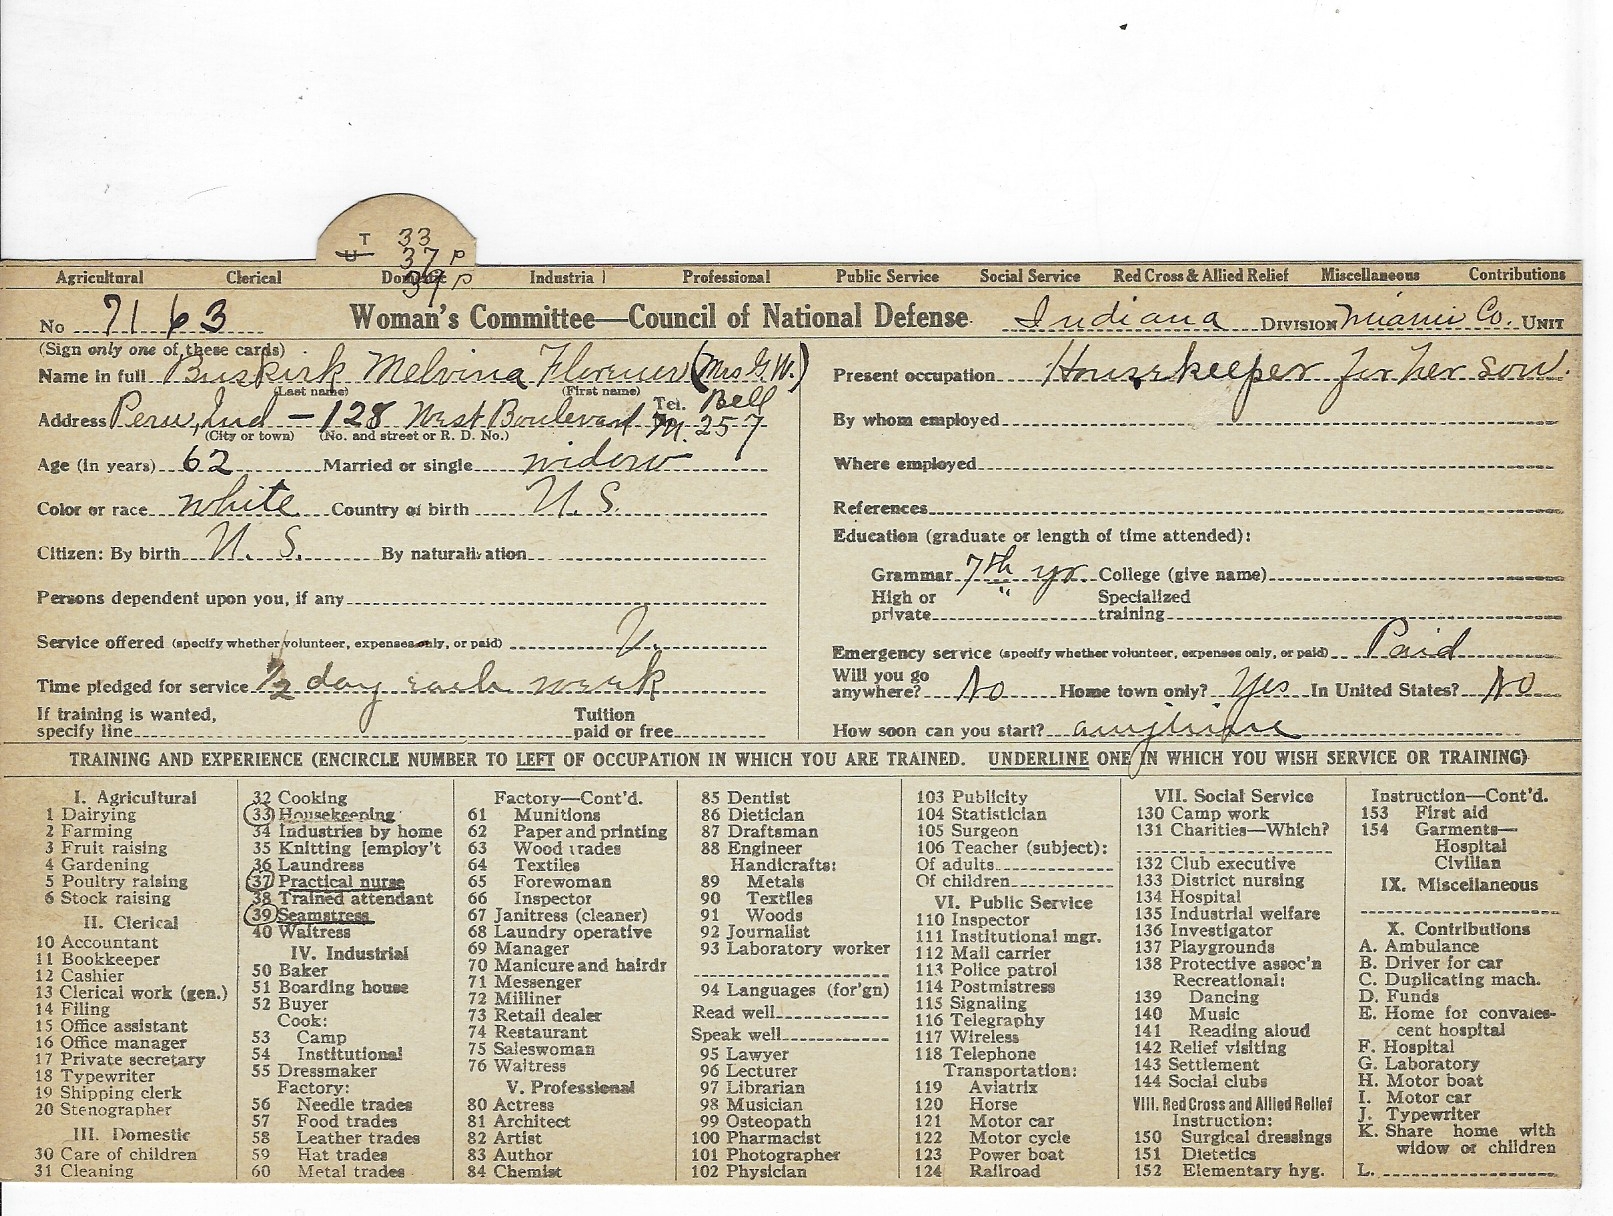 T 33
U 37 P
39 P
Agricultural Clerical Domestic Industrial Professional Public Service Social Service Red Cross & Allied Relief Miscellaneous Contributions
No 7163 Woman's Committee—Council of National Defense Indiana DIVISION Miami Co. UNIT
(Sign only one of these cards)
Name in full Buskirk Melvina Florence (Mrs G. W.)
(Last name) (First name)
Address Peru, Ind — 128 West Boulevard Tel. Bell M. 257
(City or town) (No. and street or R. D. No.)
Age (in years) 62 Married or single widow
Color or race white Country of birth U. S.
Citizen: By birth U. S. By naturalization
Persons dependent upon you, if any
Service offered (specify whether volunteer, expenses only, or paid) V.
Time pledged for service 1/2 day each week
If training is wanted,
specify line
Tuition
paid or free
Present occupation Housekeeper for her son.
By whom employed
Where employed
References
Education (graduate or length of time attended):
Grammar 7th yr College (give name)
High or
private
Specialized
training
Emergency service (specify whether volunteer, expenses only, or paid) Paid
Will you go
anywhere? No Home town only? Yes In United States? No
How soon can you start? anytime
TRAINING AND EXPERIENCE (ENCIRCLE NUMBER TO LEFT OF OCCUPATION IN WHICH YOU ARE TRAINED. UNDERLINE ONE IN WHICH YOU WISH SERVICE OR TRAINING)
I. Agricultural
1 Dairying
2 Farming
3 Fruit raising
4 Gardening
5 Poultry raising
6 Stock raising
II. Clerical
10 Accountant
11 Bookkeeper
12 Cashier
13 Clerical work (gen.)
14 Filing
15 Office assistant
16 Office manager
17 Private secretary
18 Typewriter
19 Shipping clerk
20 Stenographer
III. Domestic
30 Care of children
31 Cleaning
32 Cooking
33 Housekeeping
34 Industries by home
35 Knitting [employ't
36 Laundress
37 Practical nurse
38 Trained attendant
39 Seamstress
40 Waitress
IV. Industrial
50 Baker
51 Boarding house
52 Buyer
Cook:
53 Camp
54 Institutional
55 Dressmaker
Factory:
56 Needle trades
57 Food trades
58 Leather trades
59 Hat trades
60 Metal trades
Factory—Cont'd.
61 Munitions
62 Paper and printing
63 Wood trades
64 Textiles
65 Forewoman
66 Inspector
67 Janitress (cleaner)
68 Laundry operative
69 Manager
70 Manicure and hairdr
71 Messenger
72 Milliner
73 Retail dealer
74 Restaurant
75 Saleswoman
76 Waitress
V. Professional
80 Actress
81 Architect
82 Artist
83 Author
84 Chemist
85 Dentist
86 Dietician
87 Draftsman
88 Engineer
Handicrafts:
89 Metals
90 Textiles
91 Woods
92 Journalist
93 Laboratory worker
94 Languages (for'gn)
Read well
Speak well
95 Lawyer
96 Lecturer
97 Librarian
98 Musician
99 Osteopath
100 Pharmacist
101 Photographer
102 Physician
103 Publicity
104 Statistician
105 Surgeon
106 Teacher (subject):
Of adults
Of children
VI. Public Service
110 Inspector
111 Institutional mgr.
112 Mail carrier
113 Police patrol
114 Postmistress
115 Signaling
116 Telegraphy
117 Wireless
118 Telephone
Transportation:
119 Aviatrix
120 Horse
121 Motor car
122 Motor cycle
123 Power boat
124 Railroad
VII. Social Service
130 Camp work
131 Charities—Which?
132 Club executive
133 District nursing
134 Hospital
135 Industrial welfare
136 Investigator
137 Playgrounds
138 Protective assoc'n
Recreational:
139 Dancing
140 Music
141 Reading aloud
142 Relief visiting
143 Settlement
144 Social clubs
VIII. Red Cross and Allied Relief
Instruction:
150 Surgical dressings
151 Dietetics
152 Elementary hyg.
Instruction—Cont'd.
153 First aid
154 Garments—
Hospital
Civilian
IX. Miscellaneous
X. Contributions
A. Ambulance
B. Driver for car
C. Duplicating mach.
D. Funds
E. Home for convales-
cent hospital
F. Hospital
G. Laboratory
H. Motor boat
I. Motor car
J. Typewriter
K. Share home with
widow or children
L.